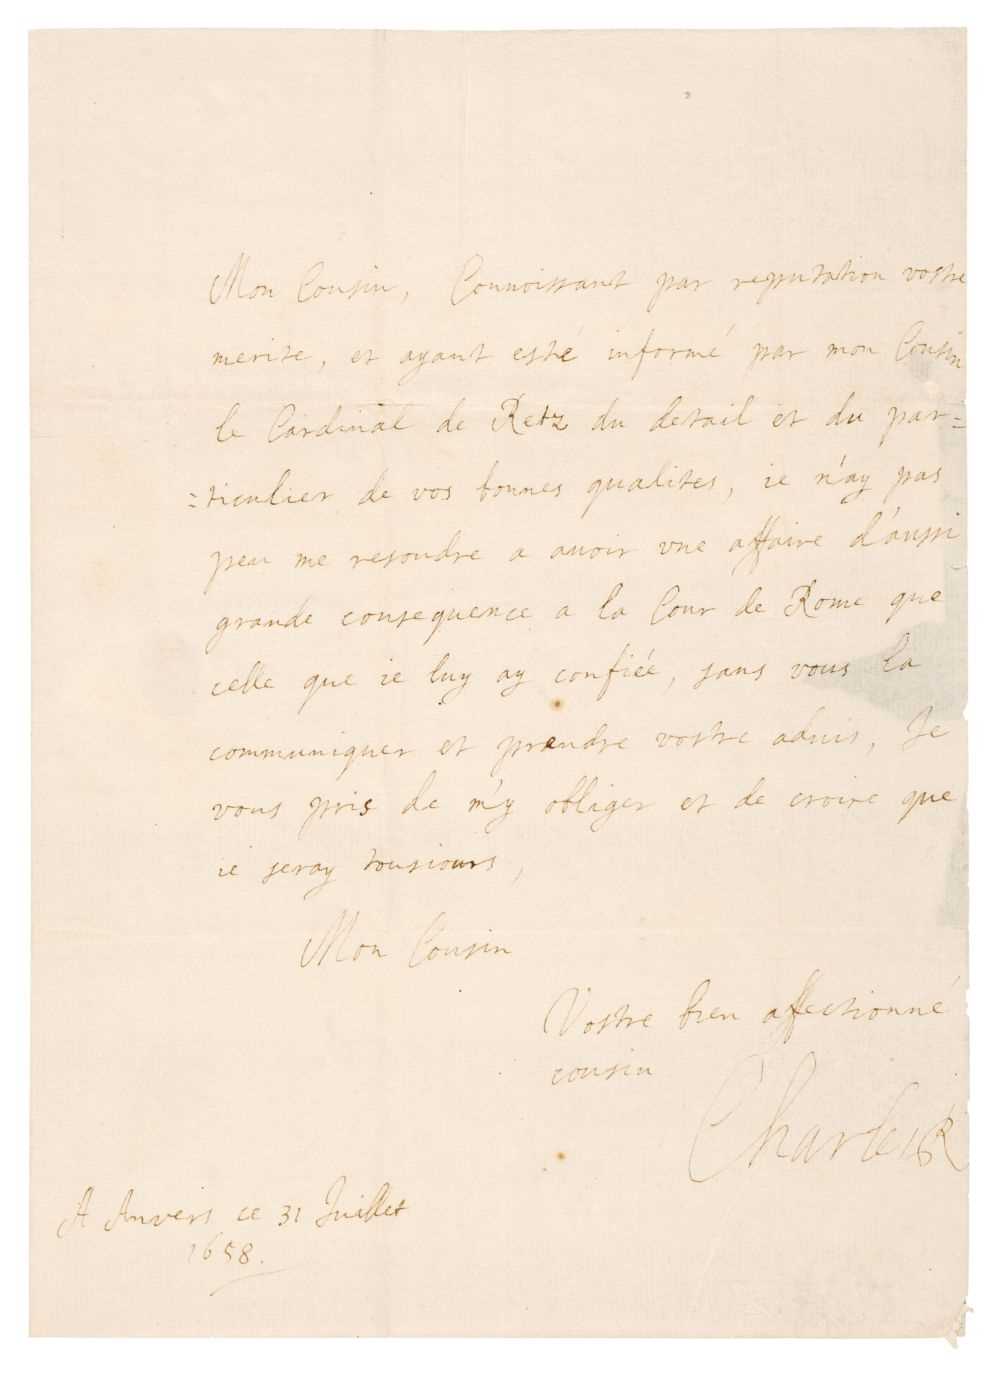 Mon Cousin, Connoissant par reputation vostre
merite, et ayant esté informé par mon Cousin
le Cardinal de Retz du detail et du par=
=ticulier de vos bonnes qualites, ie n'ay pas
peu me resoudre a auoir vne affaire d'aussi
grande consequence a la Cour de Rome que
celle que ie luy ay confiée, sans vous la
communiquer et prendre vostre aduis, Je
vous pris de m'y obliger et de croire que
ie seray tousiours,
Mon Cousin
Vostre bien affectionné
cousin
Charles R
A Anvers ce 31 Juillet
1658.